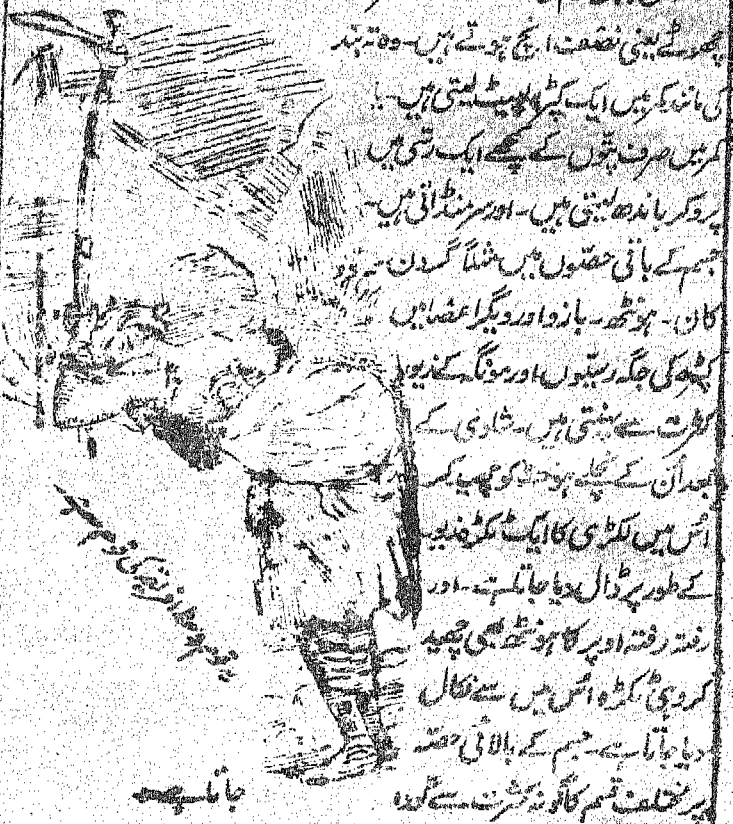 چھوٹے یعنی نصف انچ ہوتے ہیں۔ وہ تہ بند
کی مانند کمر میں ایک کپڑا لپیٹ لیتی ہیں۔ یا
کمر میں صرف پتّوں کے گچھے ایک رسّی میں
پروکر باندھ لیتی ہیں۔ اور سر منڈاتی ہیں۔
جسم کے باقی حصّوں میں مثلاً گردن۔
کان۔ ہونٹھ۔ بازو اور دیگر اعضا میں
کپڑے کی جگہ رسیّوں اور مونگے کے زیور
کثرت سے پہنتی ہیں۔ شادی کے
بعد اُن کے نچلے ہونٹھ کو چھید کر
اُس میں لکڑی کا ایک ٹکڑہ زیور
کے طور پر ڈال دیا جاتا ہے۔ اور
رفتہ رفتہ اوپر کا ہونٹھ بھی چھید
کر وہی ٹکڑہ اُس میں سے نکال
دیا جاتا ہے۔ جسم کے بالائی حصّہ
پر مختلف قسم کا گودنہ کثرت سے گودا
جاتا ہے
افریقہ کی